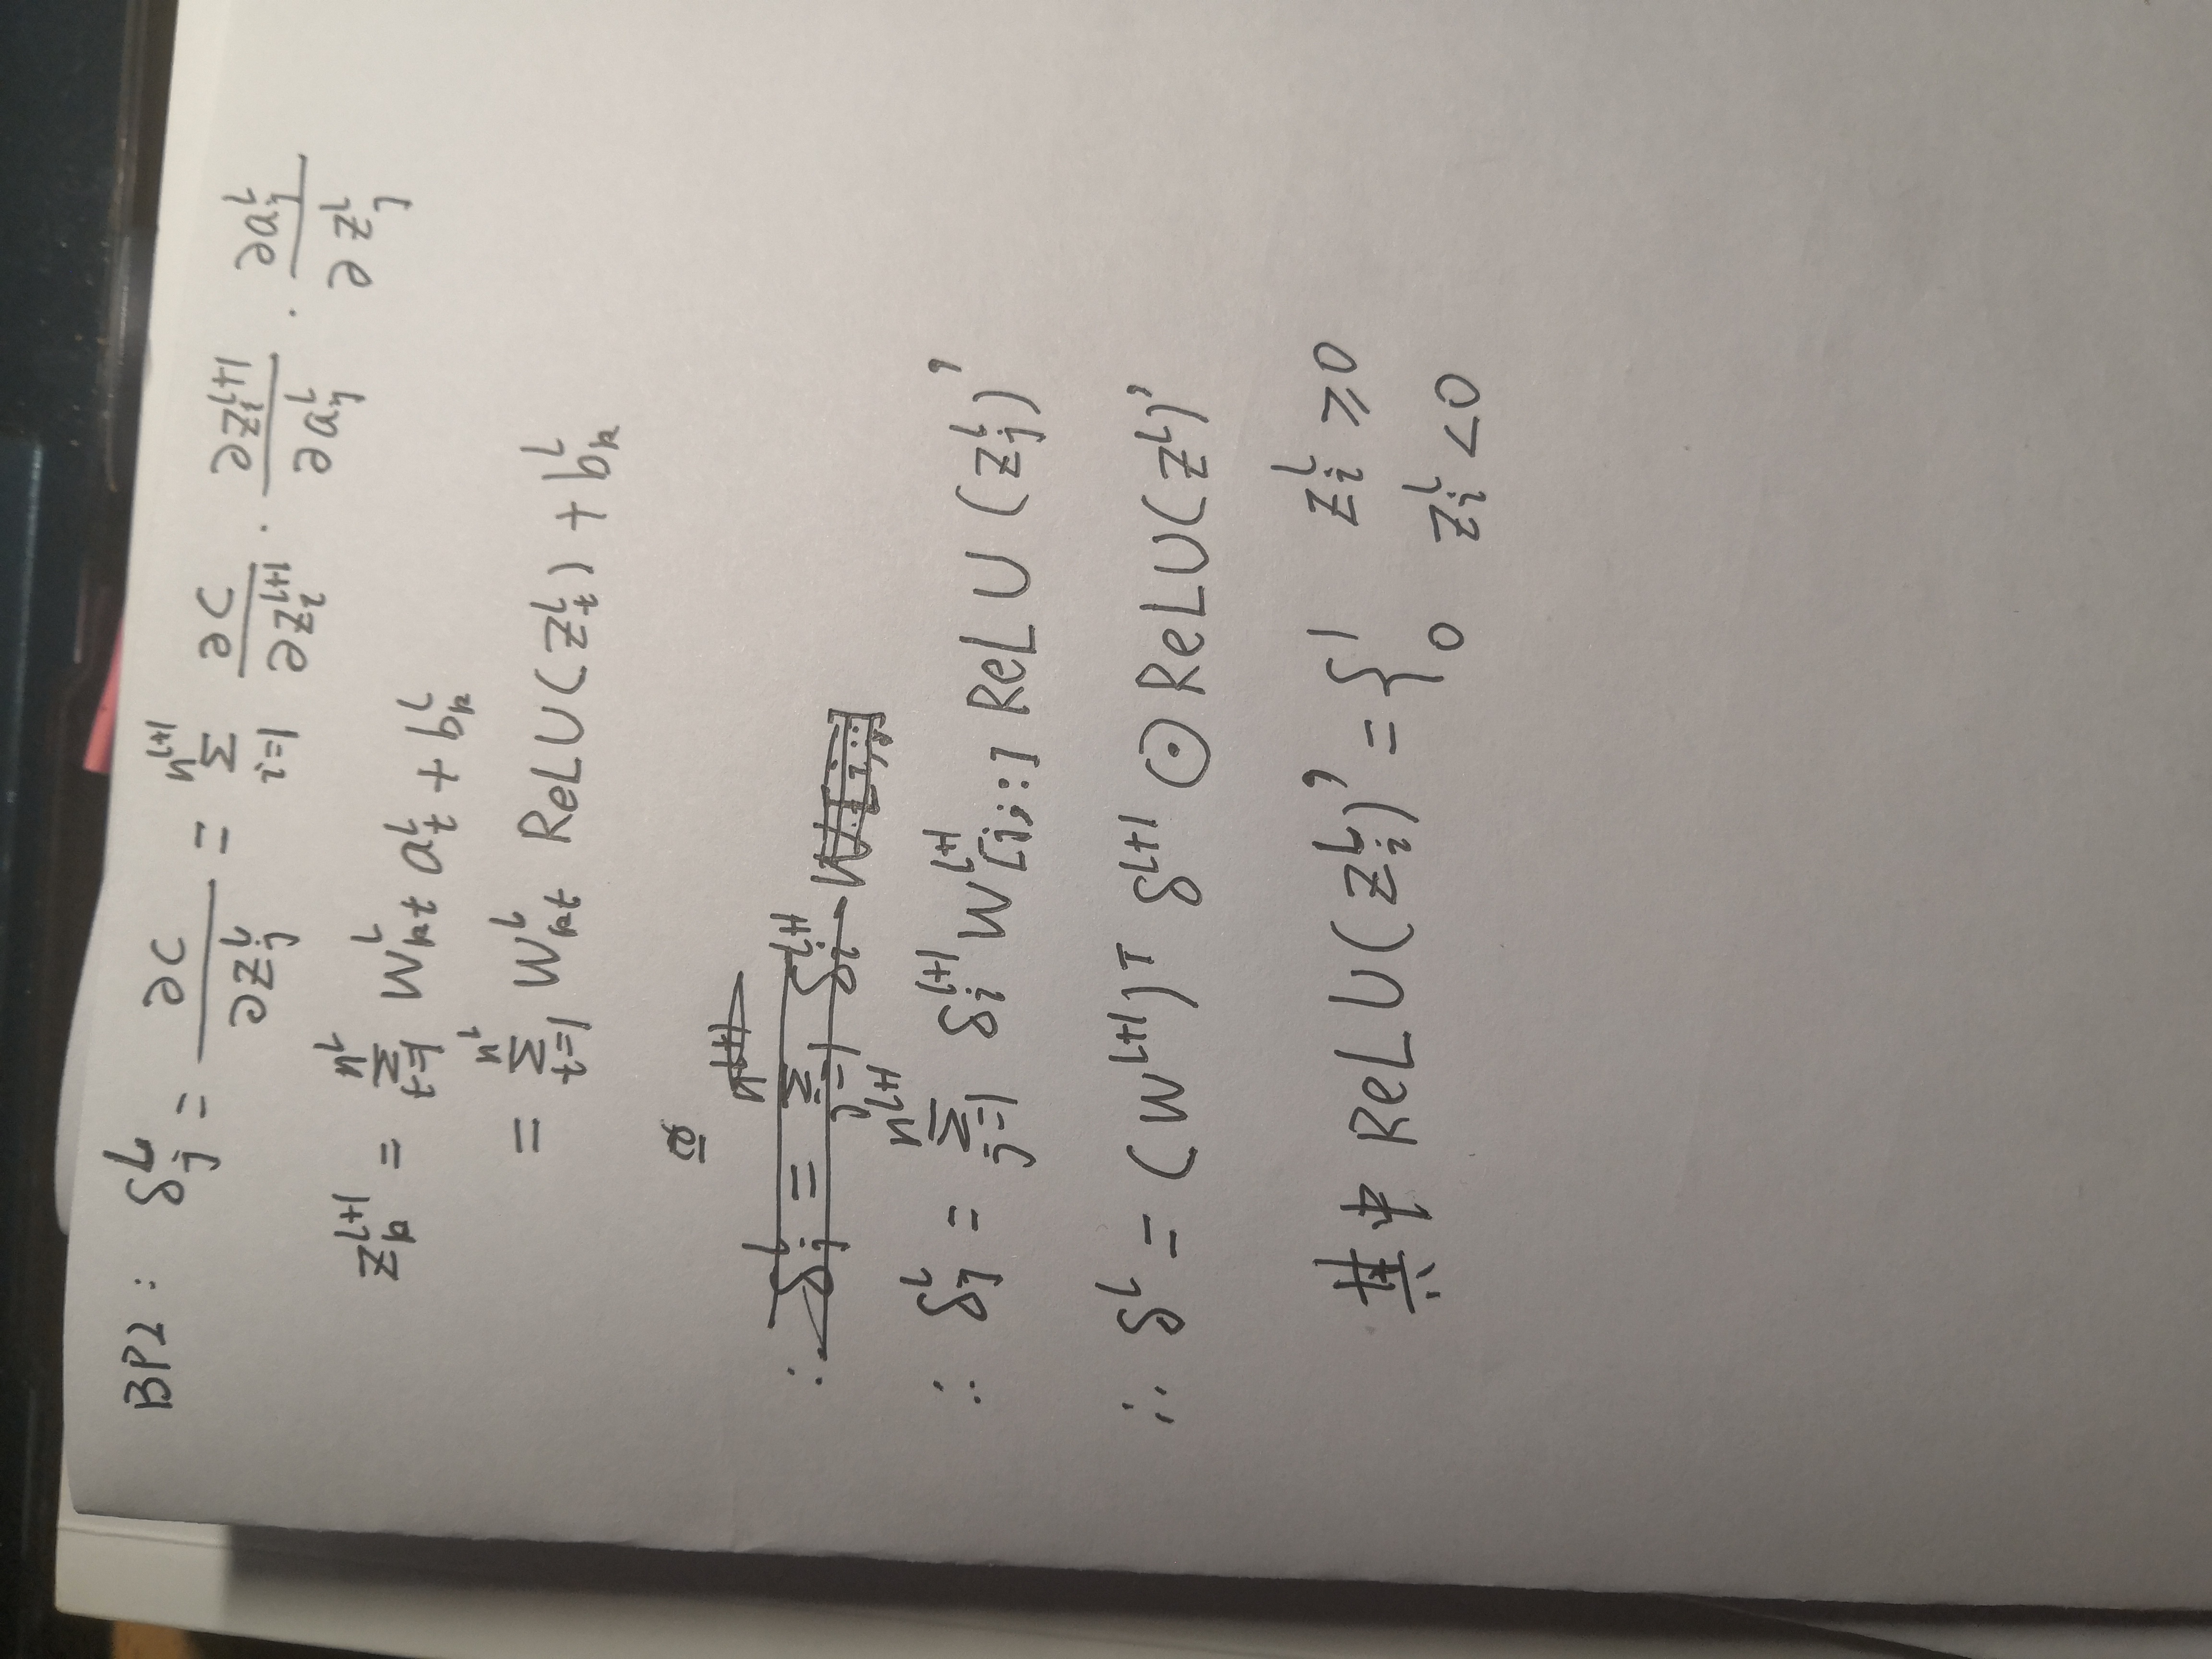 BP2: δ_j^L = ∂C/∂z_j^L = Σ_{i=1}^{n^{L+1}} ∂C/∂z_i^{L+1} · ∂z_i^{L+1}/∂a_j^L · ∂a_j^L/∂z_j^L
z_k^{L+1} = Σ_{t=1}^{n^L} W_{kt}^L a_t^L + b_k^L
= Σ_{t=1}^{n^L} W_{kt}^L ReLU(z_t^L) + b_k^L
∴ δ_j^L = Σ_{j=1}^{n^{L+1}} δ_i^{L+1} W^{L+1}[i,::] ReLU(z_j^L)'
∴ δ^L = (W^{L+1})^T δ^{L+1} ⊙ ReLU(z^L)'
其中 ReLU(z_i^L)' = { 1 z_i^L ≥ 0
0 z_i^L < 0